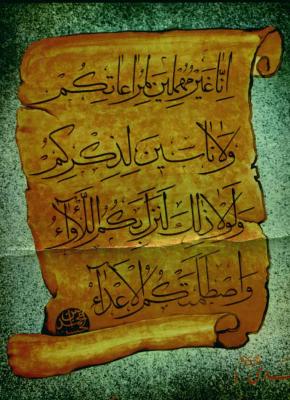 انّا غير مهملين لمراعاتكم
ولا ناسين لذكركم
ولولا ذلك لنزل بكم اللأواء
واصطلمتكم الأعداء